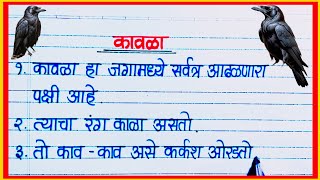 कावळा
१. कावळा हा जगामध्ये सर्वत्र आढळणारा
पक्षी आहे.
२. त्याचा रंग काळा असतो.
३. तो काव - काव असे कर्कश ओरडतो.